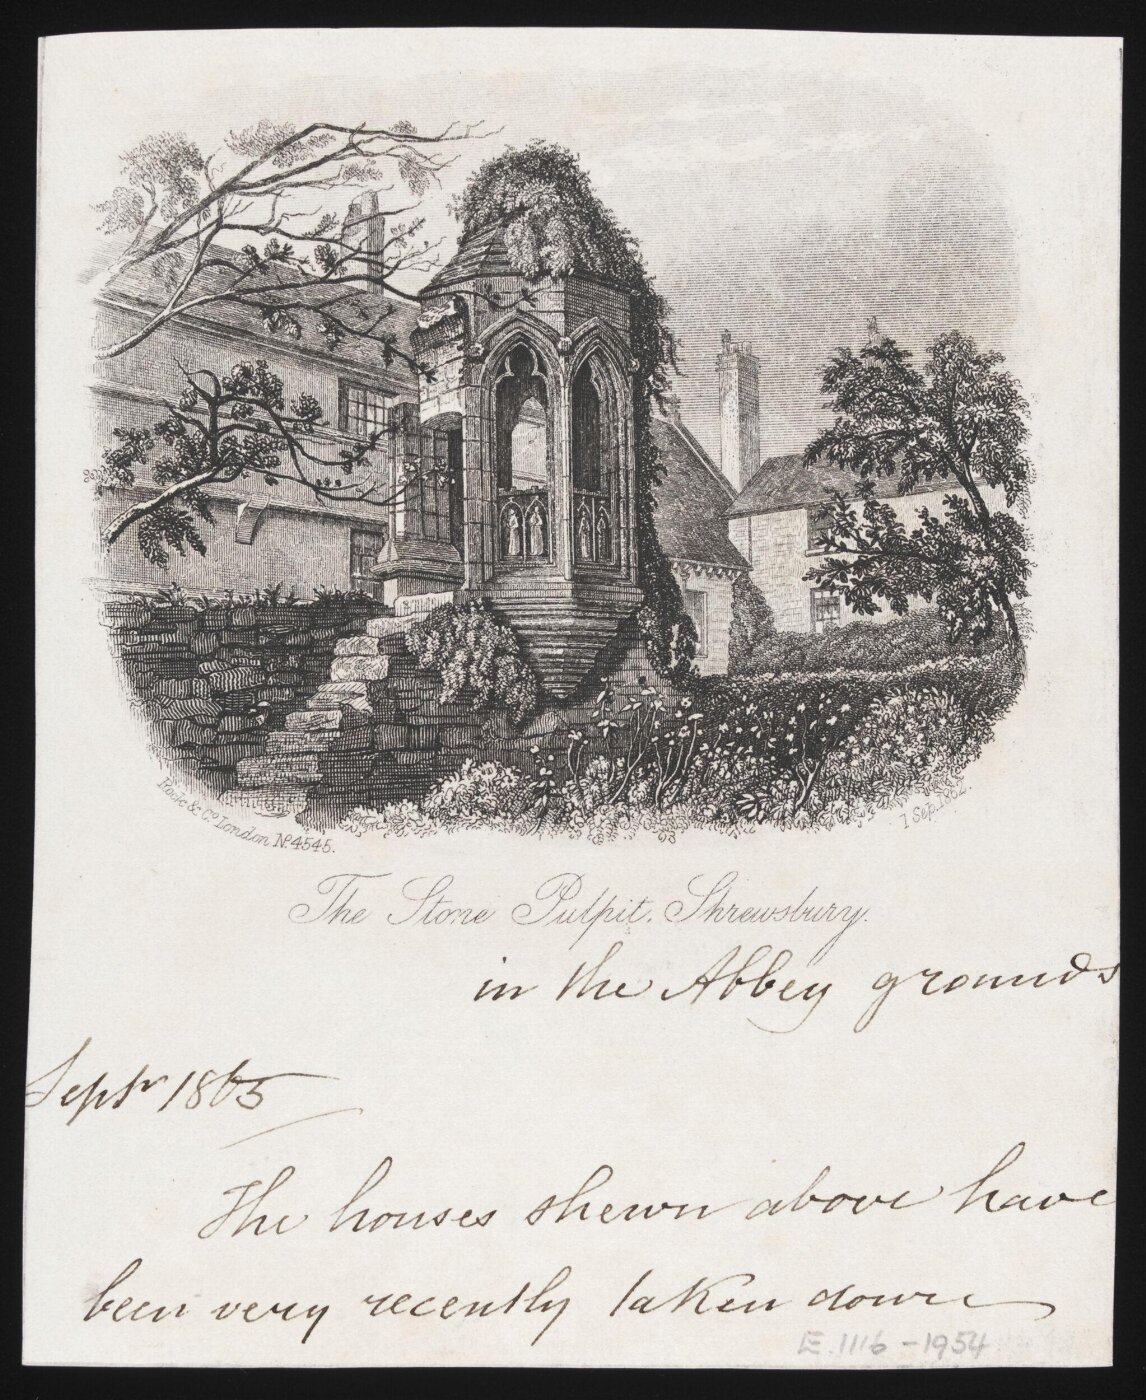 Rock & Co. London No. 4545.
1 Sep. 1862.
The Stone Pulpit. Shrewsbury.
in the Abbey grounds
Septr 1865
The houses shewn above have
been very recently taken down
E.1116-1954